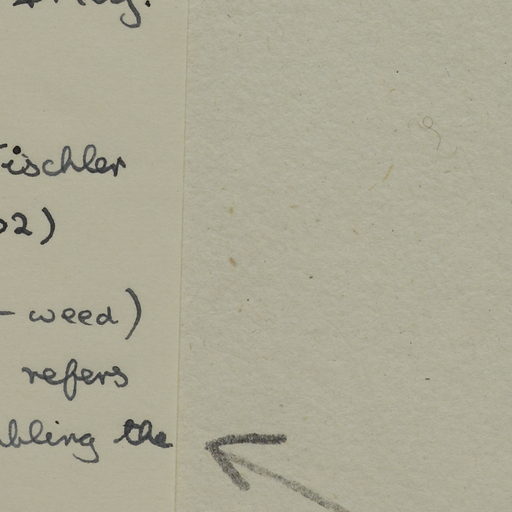 ischler
02)
- weed)
refers
bling the